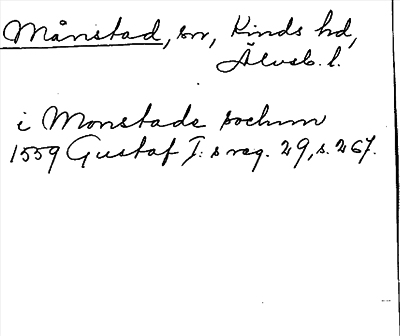 Månstad, sn, Kinds hd,
Älvsb. l.
i Monstade sochnn
1559 Gustaf I:s reg. 29, s. 267.